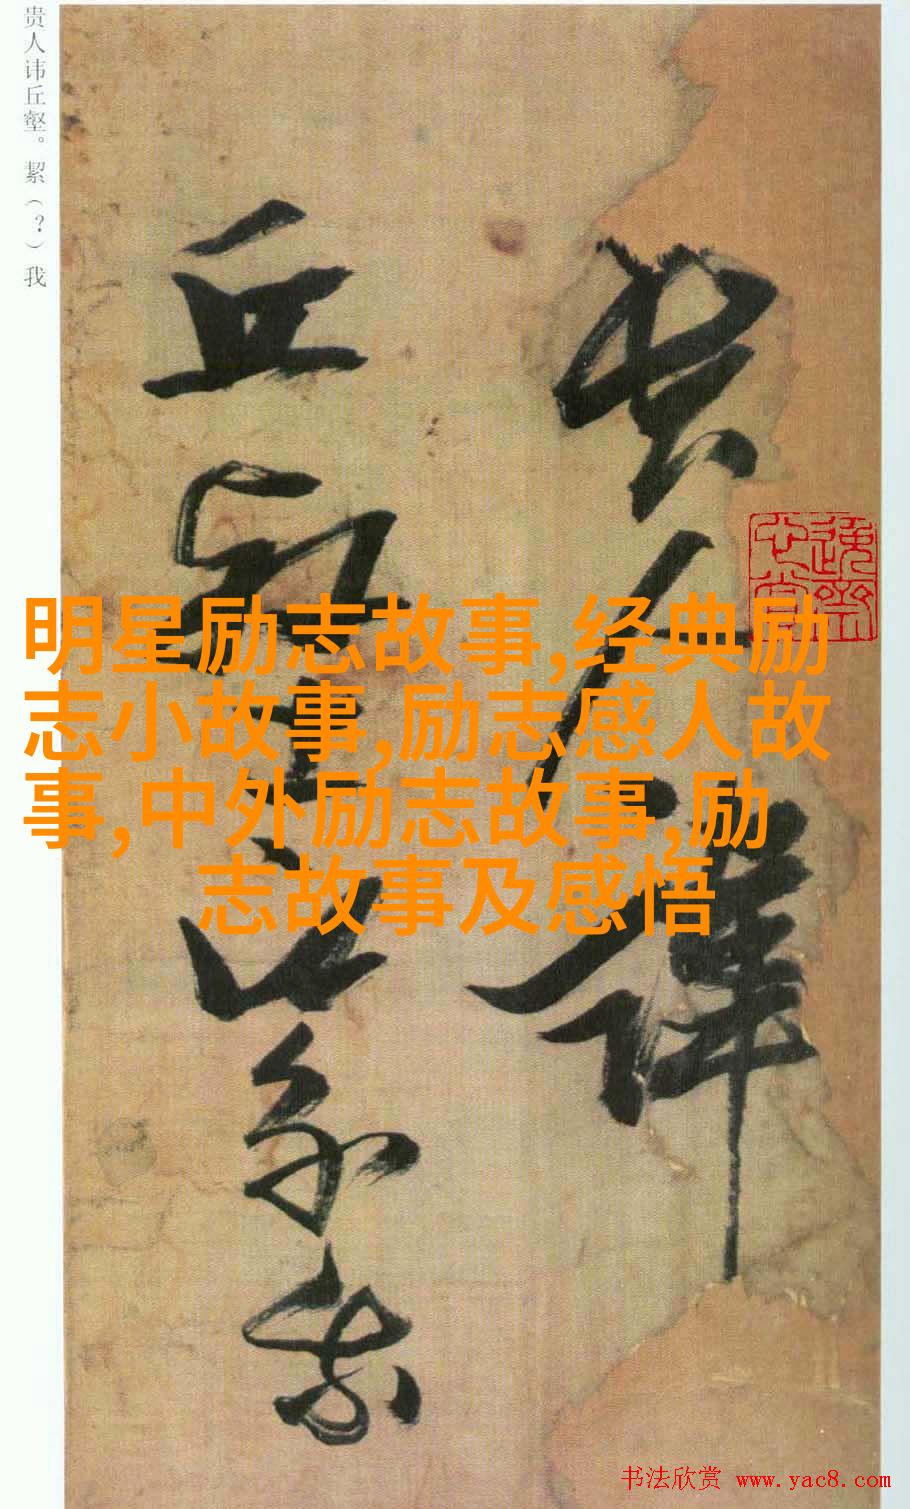 贵人讳丘壑。絜（？）我
贵人讳
丘壑之絜我
明星励志故事,经典励
志小故事,励志感人故
事,中外励志故事,励
志故事及感悟
书法欣赏 www.yac8.com